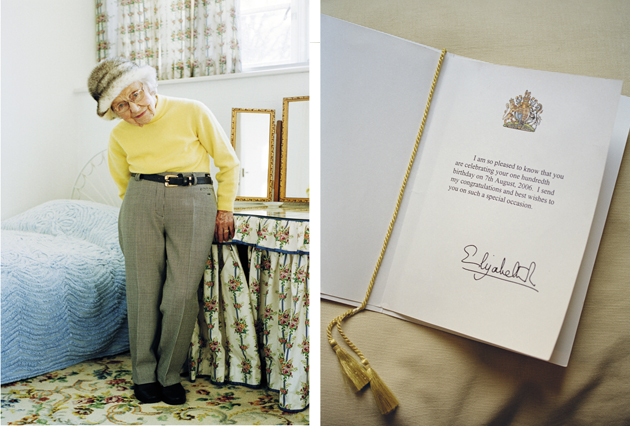 I am so pleased to know that you
are celebrating your one hundredth
birthday on 7th August, 2006.  I send
my congratulations and best wishes to
you on such a special occasion.
Elizabeth R